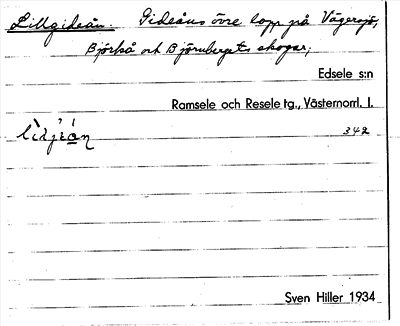 Lillgideån. Gideåns övre lopp på Vägersjö,
Björkså och Björnbergets skogar;
Edsele s:n
Ramsele och Resele tg., Västernorrl. l.
342
Sven Hiller 1934